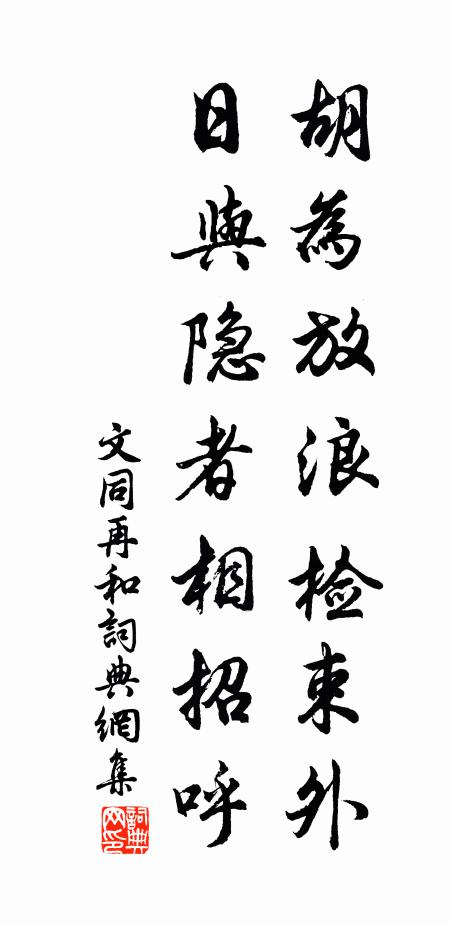 胡為放浪检束外
日與隐者相招呼
文同再和詞典網集
詞典網印